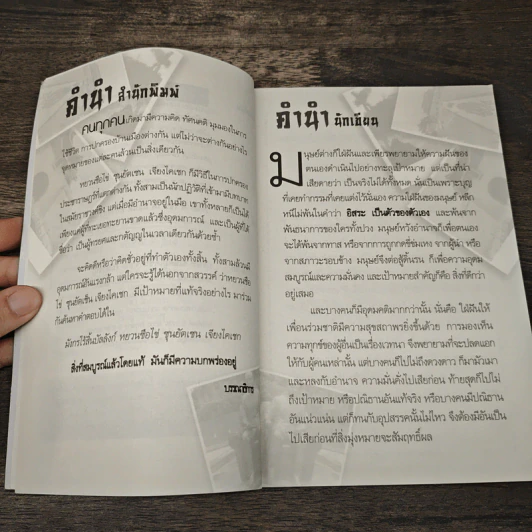 คำนำ สำนักพิมพ์
คนทุกคนเกิดมามีความคิด ทัศนคติ มุมมองในการ
ใช้ชีวิต การปกครองบ้านเมืองต่างกัน แต่ไม่ว่าจะต่างกันอย่างไร
จุดหมายของแต่ละคนล้วนเป็นสิ่งเดียวกัน
หยวนซื่อไข่ ซุนยัตเซน เจียงไคเชก ก็มีวิธีในการปกครอง
ประชาราษฎร์ที่แตกต่างกัน ทั้งสามเป็นนักปฏิวัติที่เข้ามามีบทบาท
ในสมัยราชวงศ์ชิง แต่เมื่อมีอำนาจอยู่ในมือ เขาทั้งหลายก็เป็นได้
เพียงแค่ผู้ที่ทะเยอทะยานขาดแล้วซึ่งอุดมการณ์ และเป็นผู้ที่ได้
ชื่อว่า เป็นผู้ทรยศและกตัญญูในเวลาเดียวกันด้วยซ้ำ
จะคิดดีหรือว่าคิดชั่วอยู่ที่ทำตัวเองทั้งสิ้น ทั้งสามล้วนมี
อุดมการณ์อันแรงกล้า แต่ใครจะรู้ได้นอกจากสวรรค์ ว่าหยวนซื่อ
ไข่ ซุนยัตเซน เจียงไคเชก มีเป้าหมายที่แท้จริงอย่างไร มาร่วม
กันค้นหาคำตอบได้ใน
มังกรไร้สิ้นบัลลังก์ หยวนซื่อไข่ ซุนยัตเซน เจียงไคเชก
สิ่งที่สมบูรณ์แล้วโดยแท้ มันก็มีความบกพร่องอยู่
บรรณาธิการ
คำนำ นักเขียน
มนุษย์ต่างก็ใฝ่ฝันและเพียรพยายามให้ความฝันของ
ตนเองดำเนินไปอย่างทะลุเป้าหมาย แต่เป็นที่น่า
เสียดายว่า เป็นจริงไม่ได้ทั้งหมด นั่นเป็นเพราะบุญ
ที่เคยทำกรรมที่เคยแต่งไว้นั่นเอง ความใฝ่ฝันของมนุษย์ หลีก
หนีไม่พ้นในคำว่า อิสระ เป็นตัวของตัวเอง และพ้นจาก
พันธนาการของใครทั้งปวง มนุษย์หวังอำนาจก็เพื่อตนเอง
จะได้พ้นจากทาส หรือจากการถูกกดขี่ข่มเหง จากผู้นำ หรือ
จากสภาวะรอบข้าง มนุษย์จึงต่อสู้ดิ้นรน ก็เพื่อความอุดม
สมบูรณ์และความมั่นคง และเป้าหมายสำคัญก็คือ สิ่งที่ดีกว่า
อยู่เสมอ
และบางคนก็มีอุดมคติมากกว่านั้น นั่นคือ ใฝ่ฝันให้
เพื่อนร่วมชาติมีความสุขสถาพรยิ่งขึ้นด้วย การมองเห็น
ความทุกข์ของผู้อื่นเป็นเรื่องเวทนา จึงพยายามที่จะปลดแอก
ให้กับผู้คนเหล่านั้น แต่บางคนก็ไปไม่ถึงดวงดาว ก็มามัวเมา
และหลงกับอำนาจ ความมั่นคั่งไปเสียก่อน ท้ายสุดก็ไปไม่
ถึงเป้าหมาย หรือปณิธานอันแท้จริง หรือบางคนมีปณิธาน
อันแน่วแน่ แต่ก็ทนกับอุปสรรคนั้นไม่ไหว จึงต้องมีอันเป็น
ไปเสียก่อนที่สิ่งมุ่งหมายจะสัมฤทธิ์ผล